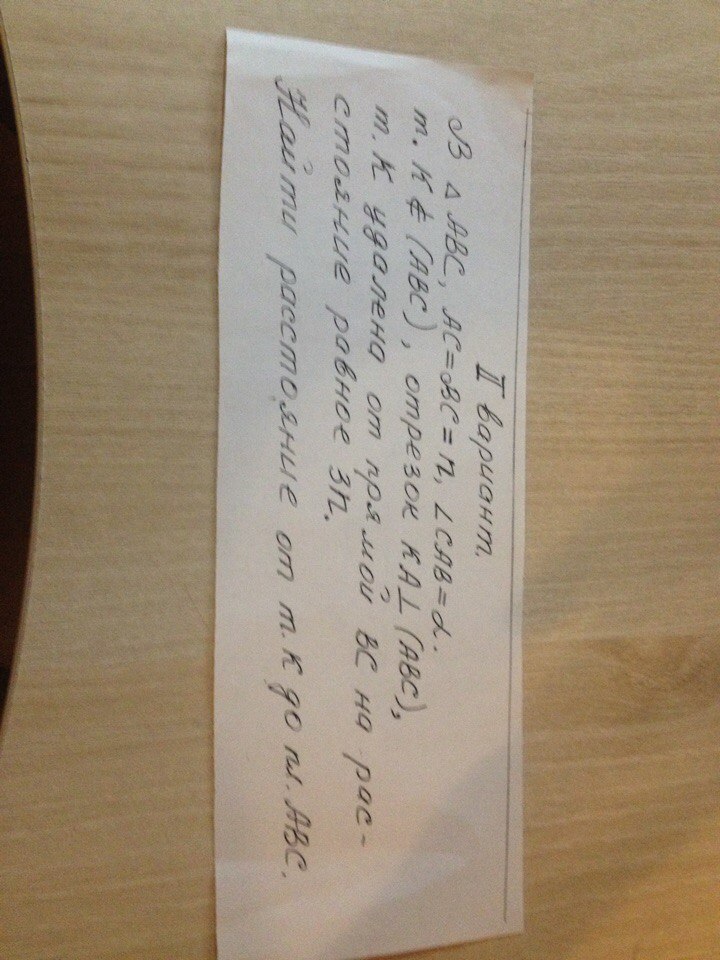 II вариант.
В △ ABC, AC=BC=n, ∠CAB=α.
т. K ∉ (ABC), отрезок KA⊥(ABC),
т. K удалена от прямой BC на рас-
стояние равное 3n.
Найти расстояние от т. K до пл. ABC.